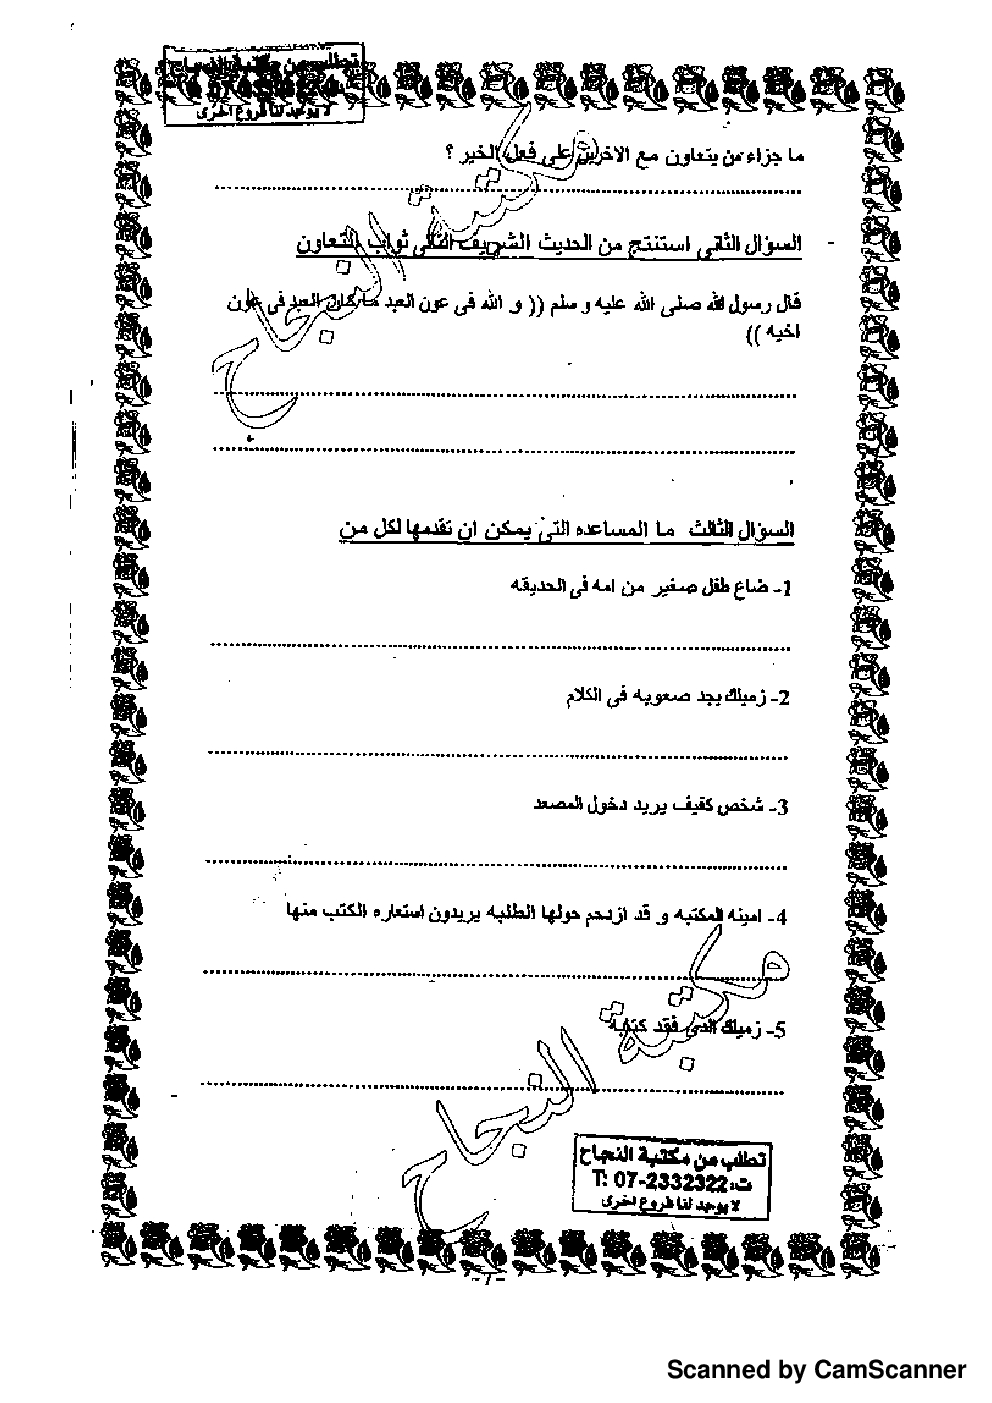 تطلب من مكتبة النجاح
لا يوجد لنا فروع اخرى
ما جزاء من يتعاون مع الاخرين على فعل الخير ؟
السؤال الثانى استنتج من الحديث الشريف التالى ثواب التعاون
قال رسول الله صلى الله عليه و سلم (( و الله فى عون العبد ما كان العبد فى عون
اخيه ))
مكتبة النجاح
السؤال الثالث ما المساعده التى يمكن ان نقدمها لكل من
1- ضاع طفل صغير من امه فى الحديقه
2- زميلك يجد صعوبه فى الكلام
3- شخص كفيف يريد دخول المصعد
4- امينه المكتبه و قد ازدحم حولها الطلبه يريدون استعاره الكتب منها
5- زميلك الذى فقد كتابه
مكتبة النجاح
تطلب من مكتبة النجاح
ت: T: 07-2332322
لا يوجد لنا فروع اخرى
Scanned by CamScanner